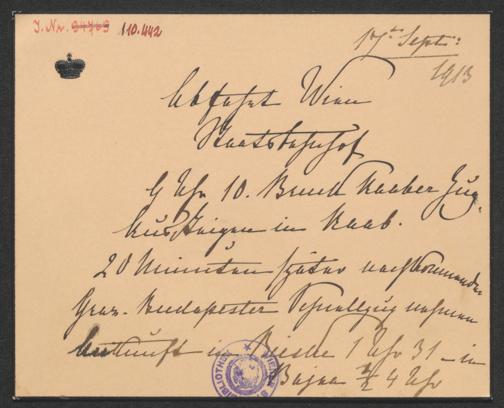 I.Nr. 64703 110.442
17ten Sept:
1913
Abfahrt Wien
Staatsbahnhof
9 Uhr 10. Bruck Raaber Zug.
Aussteigen in Raab.
20 Minuten später nachkommenden
Graz-Budapester Schnellzug nehmen
Ankunft in Bicske 1 Uhr 31 – in
Bajna 3/4 4 Uhr
BIBLIOTHEK